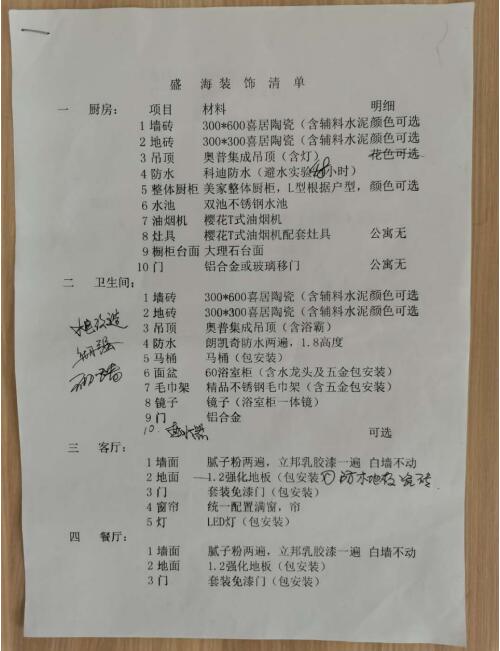 盛 海 装 饰 清 单
一 厨房： 项目 材料 明细
1 墙砖 300*600喜居陶瓷（含辅料水泥 颜色可选
2 地砖 300*300喜居陶瓷（含辅料水泥 颜色可选
3 吊顶 奥普集成吊顶（含灯） 花色可选
4 防水 科迪防水（避水实验48小时）
5 整体厨柜 美家整体厨柜，L型根据户型， 颜色可选
6 水池 双池不锈钢水池
7 油烟机 樱花T式油烟机
8 灶具 樱花T式油烟机配套灶具 公寓无
9 橱柜台面 大理石台面
10 门 铝合金或玻璃移门 公寓无
二 卫生间：
1 墙砖 300*600喜居陶瓷（含辅料水泥 颜色可选
2 地砖 300*300喜居陶瓷（含辅料水泥 颜色可选
3 吊顶 奥普集成吊顶（含浴霸）
4 防水 朗凯奇防水两遍，1.8高度
5 马桶 马桶（包安装）
6 面盆 60浴室柜（含水龙头及五金包安装）
7 毛巾架 精品不锈钢毛巾架（含五金包安装）
8 镜子 镜子（浴室柜一体镜）
9 门 铝合金
10. 可选
三 客厅：
1 墙面 腻子粉两遍，立邦乳胶漆一遍 白墙不动
2 地面 1.2强化地板（包安装） ① 防木地板瓷砖
3 门 套装免漆门（包安装）
4 窗帘 统一配置满窗，帘
5 灯 LED灯（包安装）
四 餐厅：
1 墙面 腻子粉两遍，立邦乳胶漆一遍 白墙不动
2 地面 1.2强化地板（包安装）
3 门 套装免漆门（包安装）